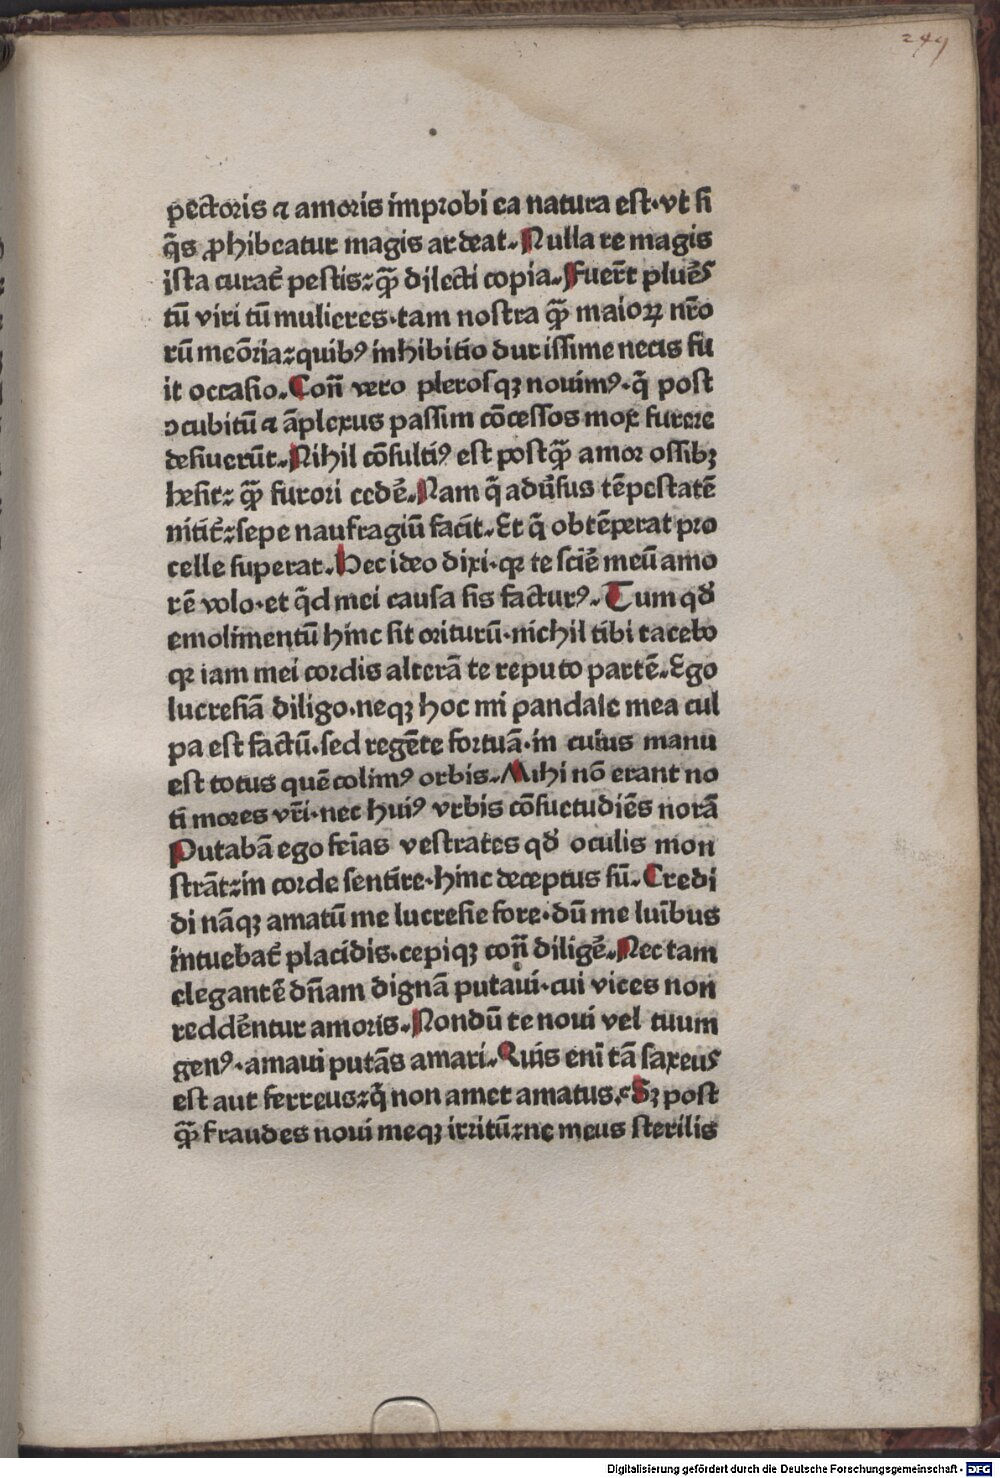 249
pectoris ⁊ amoris improbi ea natura est·vt si
q̄s ꝓhibeatur magis ardeat. Nulla re magis
ista curat᷑ pestis: ꝙ̄ dilecti copia. Fuer̄t plures
tū viri tū mulieres·tam nostra ꝙ̄ maioꝝ nr̄o
rū meōria: quibꝰ inhibitio durissime necis fu
it occasio. Con̄ vero plerosqꝫ nouimꝰ·q̄ post
ↄcubitū ⁊ āplexus passim cōcessos mox furere
desiuerūt. Nihil cōsultiꝰ est postꝙ̄ amor ossibꝫ
hesit: ꝙ̄ furori cedē. Nam q̄ adūsus tēpestatē
nitit᷑: sepe naufragiū facit. Et q̄ obtēperat pro
celle superat. Hec ideo dixi·qꝛ te sciē meū amo
rē volo·et q̄d mei causa sis facturꝰ. Tum qd̄
emolimentū hinc sit oriturū·nichil tibi tacebo
qꝛ iam mei cordis alterā te reputo partē. Ego
lucresiā diligo·neqꝫ hoc mi pandale mea cul
pa est factū·sed regēte fortuā·in cuius manu
est totus quē colimꝰ orbis. Mihi nō erant no
ti mores vr̄i·nec huiꝰ vrbis cōsuetudiēs norā
Putabā ego feīas vestrates qd̄ oculis mon
strāt: in corde sentire·hinc deceptus sū. Credi
di nāqꝫ amatū me lucresie fore·dū me luībus
intuebat᷑ placidis·cepiqꝫ con̄ diligē. Nec tam
elegantē dn̄am dignā putaui·cui vices non
reddēntur amoris. Nondū te noui vel tuum
genꝰ·amaui putās amari. Quis eni tā saxeus
est aut ferreus: q̄ non amet amatus. Sꝫ post
ꝙ̄ fraudes noui meqꝫ irritū: ne meus sterilis
Digitalisierung gefördert durch die Deutsche Forschungsgemeinschaft - DFG